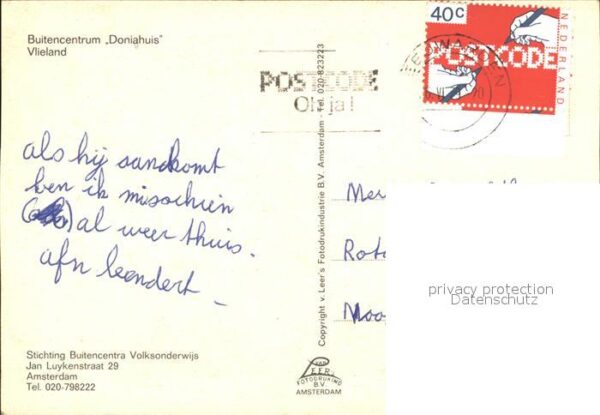 Buitencentrum „Doniahuis"
Vlieland
40c
NEDERLAND
POSTCODE
POSTCODE
Oh ja!
als hij aankomt
ben ik misschien
al weer thuis.
afn leendert
Copyright v. Leer's Fotodrukindustrie B.V. Amsterdam - Tel. 020-823223
privacy protection
Datenschutz
Stichting Buitencentra Volksonderwijs
Jan Luykenstraat 29
Amsterdam
Tel. 020-798222
VAN
LEER'S
FOTODRUKIND
B.V.
AMSTERDAM